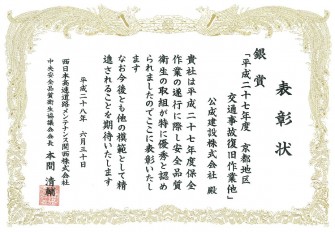 表彰状
銀賞
「平成二十七年度 京都地区
交通事故復旧作業他」
公成建設株式会社 殿
貴社は平成二十七年度保全
作業の遂行に際し安全品質
衛生の取組が特に優秀と認め
られましたのでここに表彰いたし
ます
なお今後とも他の模範として精
進されることを期待いたします
平成二十八年 六月三十日
西日本高速道路メンテナンス関西株式会社
中央安全品質衛生協議会会長 本間 清輔